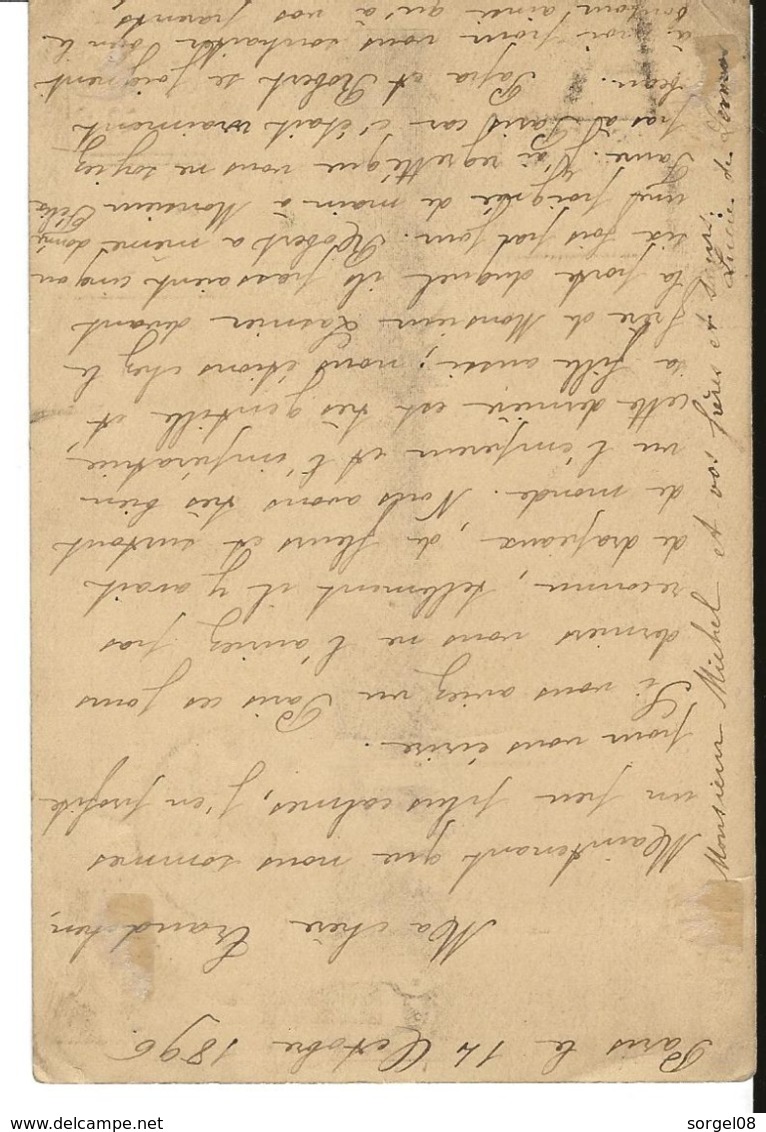 Paris le 14 Octobre 1896
Ma chère
Maintenant que nous sommes
un peu plus calmes, j'en profite
pour vous écrire.
Si vous aviez vu Paris ces jours
derniers vous ne l'auriez pas
reconnu, tellement il y avait
de drapeaux, de fleurs et surtout
de monde. Nous avons très bien
vu l'empereur et l'impératrice,
cette dernière est très gentille et
sa fille aussi; nous étions chez le
frère de Monsieur Lasnier devant
la porte duquel ils passaient cinq ou
six fois par jour. Robert a même donné
une poignée de main à Monsieur Félix
Faure. J'ai regretté que vous ne soyez
pas à Paris car c'était vraiment
beau. Papa et Robert se joignent
à moi pour vous souhaiter bien le
bonjour ainsi qu'à vos parents
Monsieur Michel et vos frères et sœur.
Lucie de
sorgel08